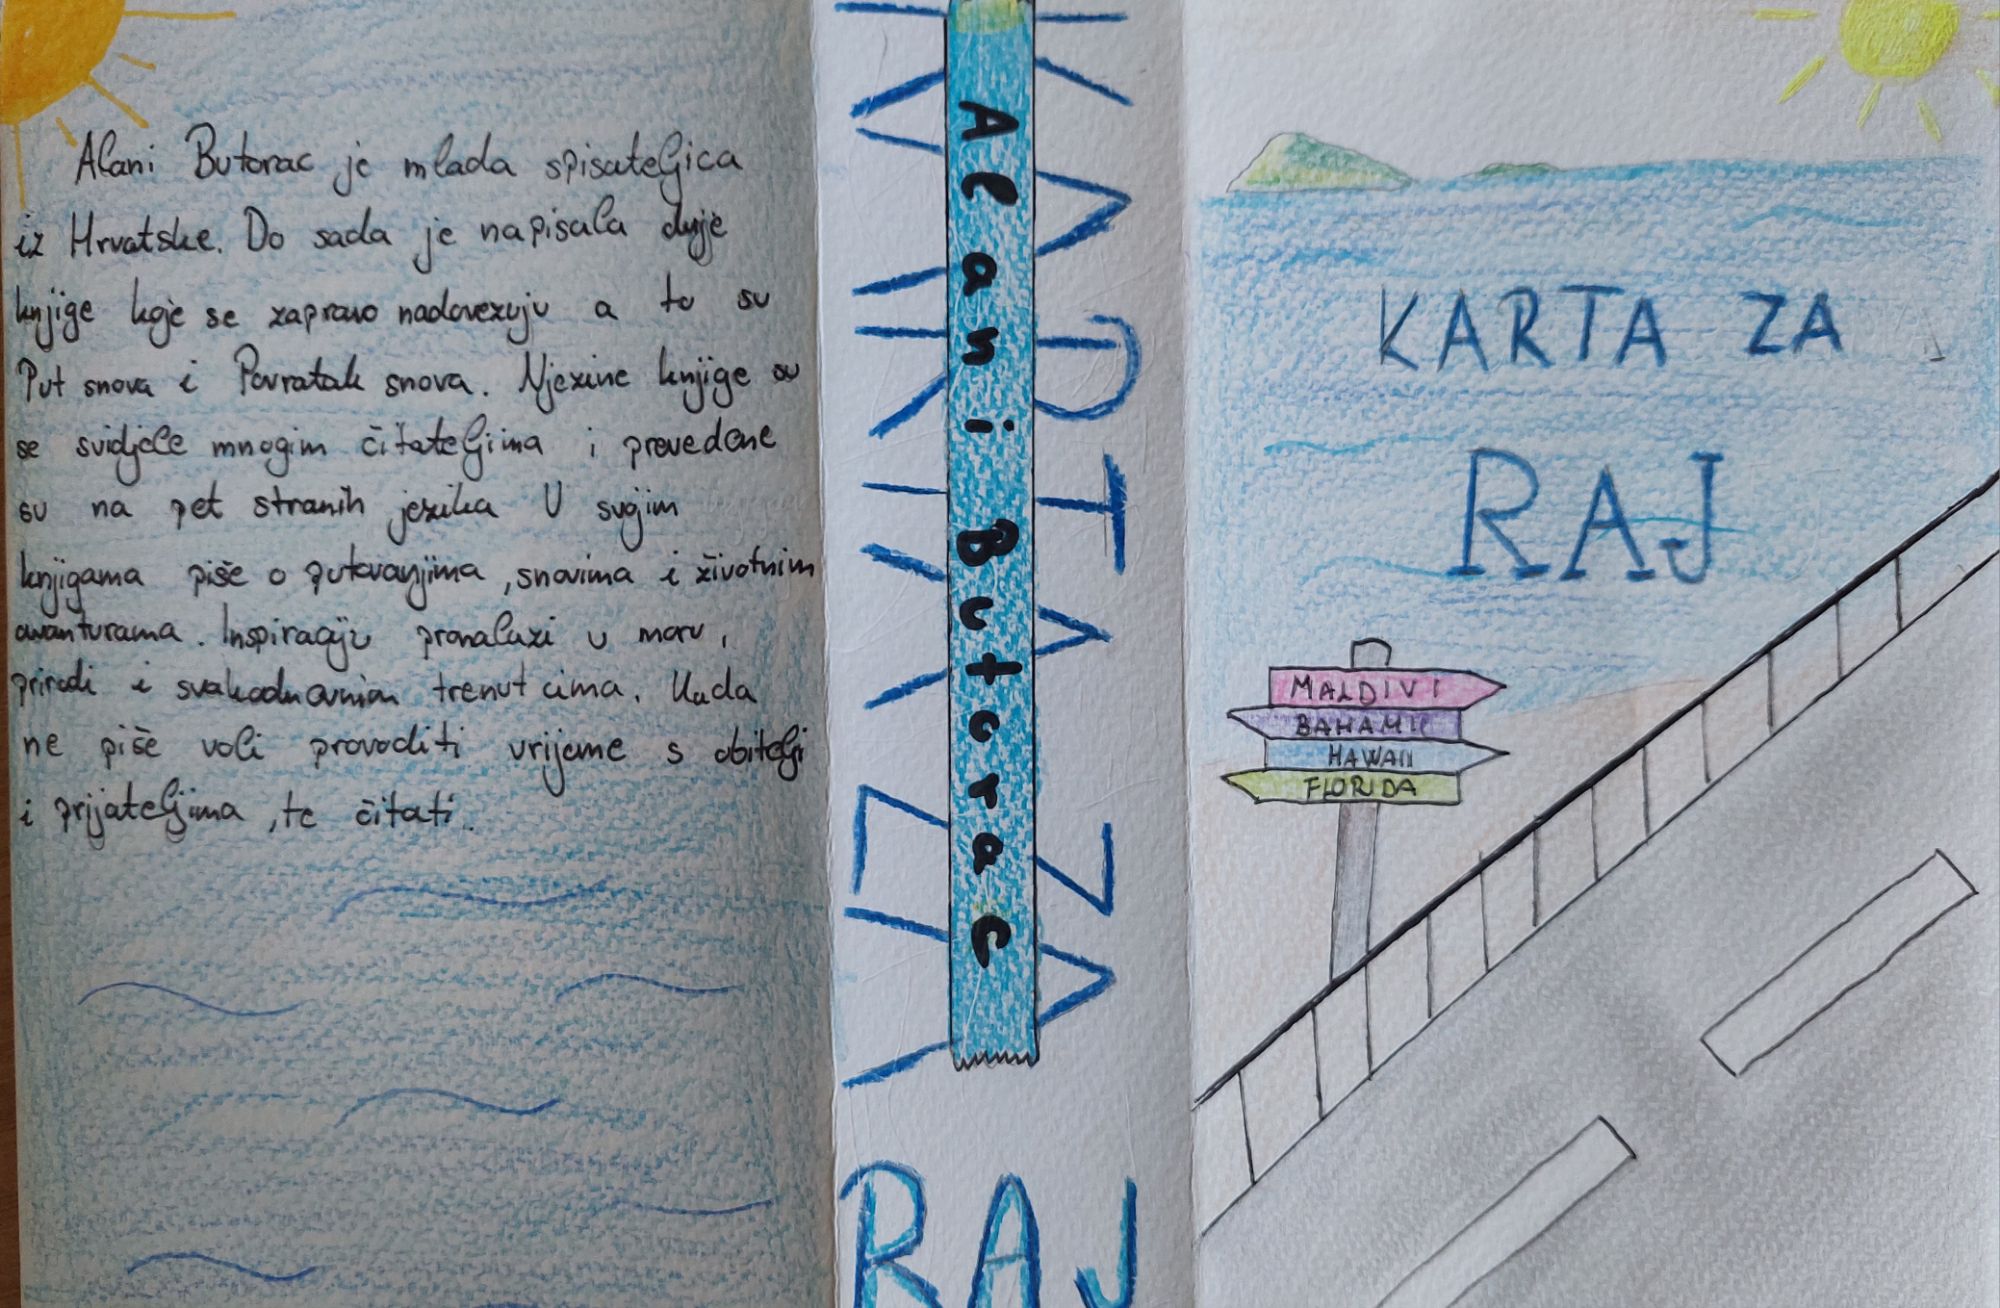 Alani Butorac je mlada spisateljica
iz Hrvatske. Do sada je napisala dvije
knjige koje se zapravo nadovezuju a to su
Put snova i Povratak snova. Njezine knjige su
se svidjele mnogim čitateljima i prevedene
su na pet stranih jezika U svojim
knjigama piše o putovanjima, snovima i životnim
avanturama. Inspiraciju pronalazi u moru,
prirodi i svakodnevnim trenutcima. Kada
ne piše voli provoditi vrijeme s obitelji
i prijateljima, te čitati.
Alani Butorac
KARTA ZA
RAJ
KARTA ZA
RAJ
MALDIVI
BAHAMI
HAWAII
FLORIDA